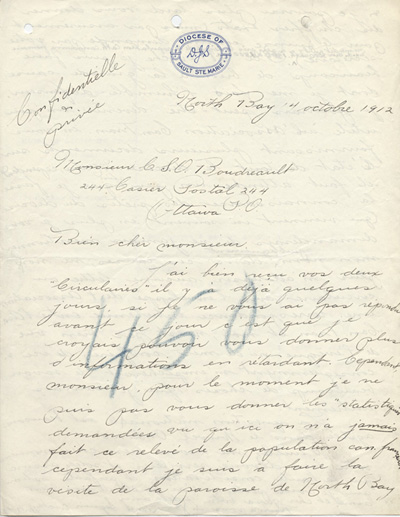 DIOCESE OF
SAULT STE. MARIE
Confidentielle
privée
North Bay 4 octobre 1912
Monsieur C.S.O. Boudreault
244 Casier Postal 244
Ottawa P.O
Bien cher monsieur
J'ai bien reçu vos deux
"Circulaires" il y a déjà quelques
jours, si je ne vous ai pas repondu
avant ce jour c'est que je
croyais pouvoir vous donner plus
d'informations en retardant. Cependant
monsieur, pour le moment je ne
puis pas vous donner les "statistiques
demandées vu qu'ici on n'a jamais
fait ce relevé de la population can. française
cependant je suis a faire la
visite de la paroisse de North Bay
450